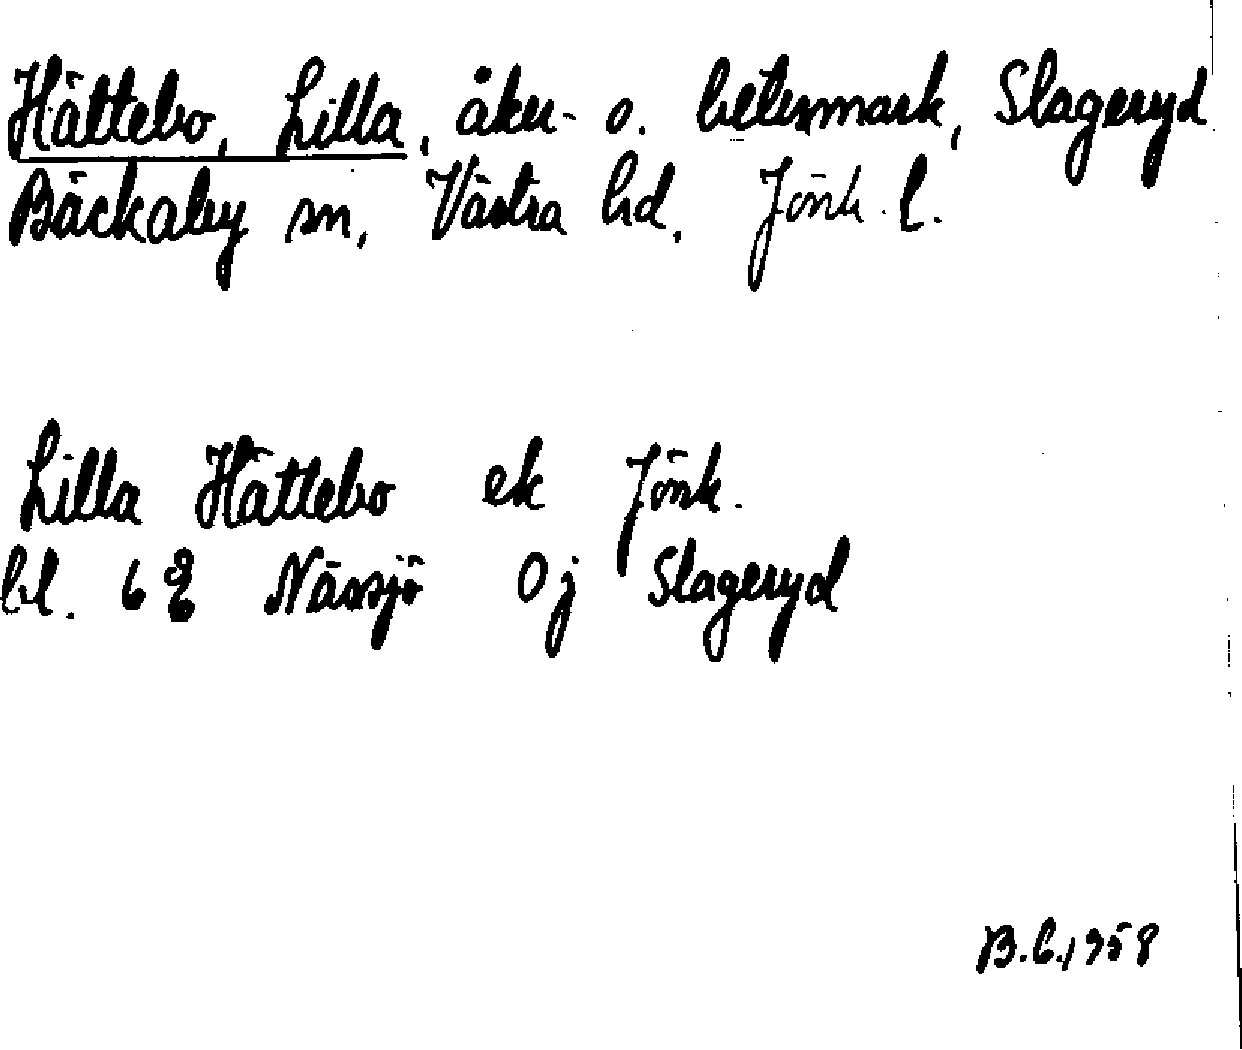 Hättebo, Lilla, åker- o. betesmark, Slageryd
Bäckaby sn, Västra hd, Jönk. l.
Lilla Hättebo ek Jönk.
bl. 6 E Nässjö 0j Slageryd
B.C. 1958